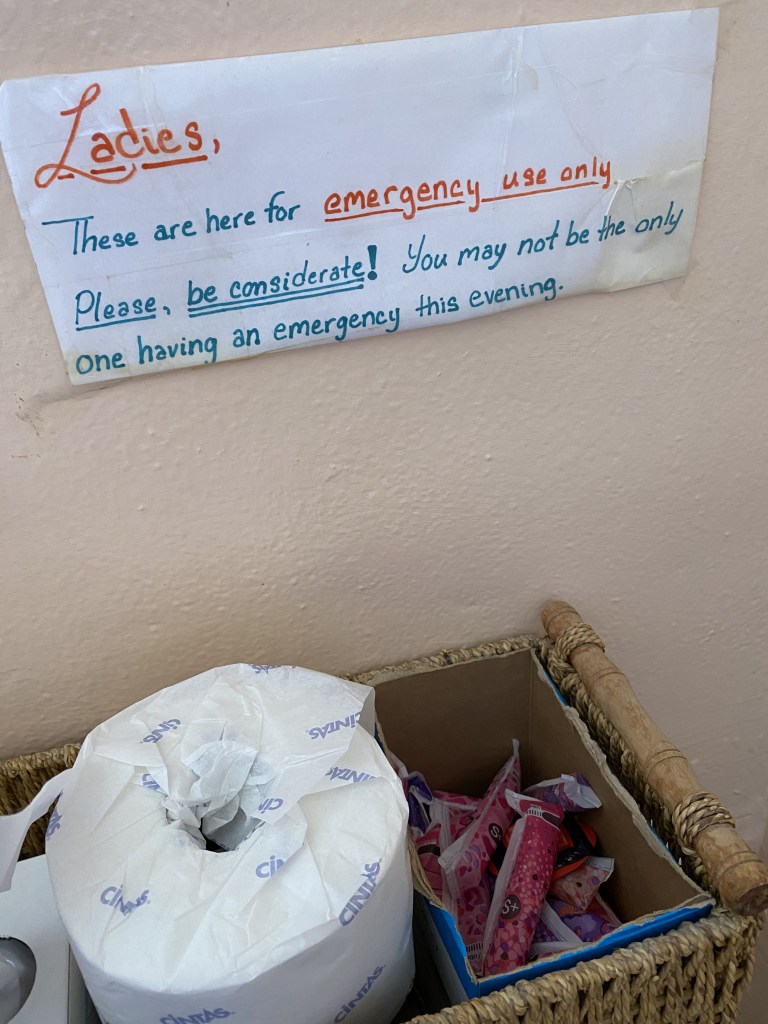 Ladies,
These are here for emergency use only
Please, be considerate! You may not be the only
one having an emergency this evening.
CINTAS
CINTAS
CINTAS
CINTAS
CINTAS
CINTAS.